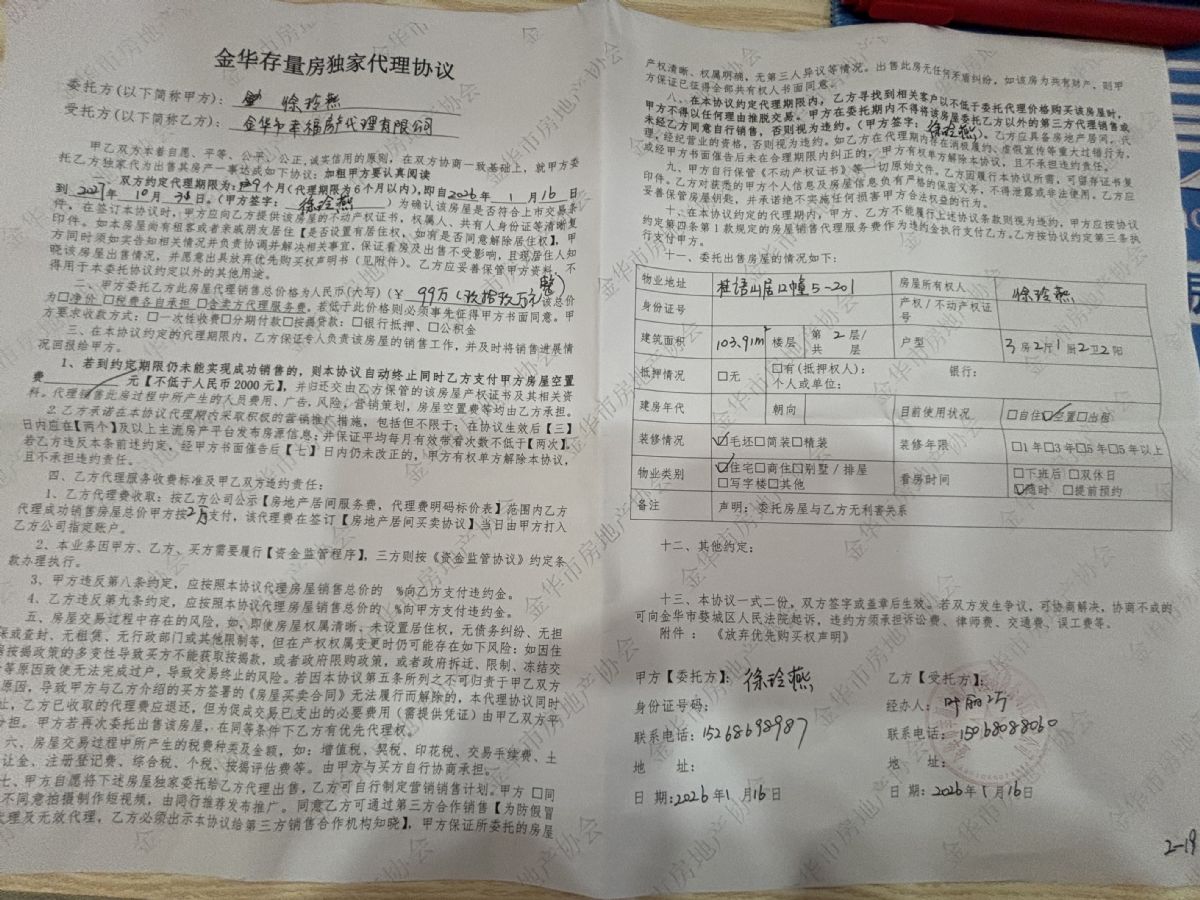 金华存量房独家代理协议
委托方(以下简称甲方): 徐玲燕
受托方(以下简称乙方): 金华市幸福房产代理有限公司
甲乙双方本着自愿、平等、公平、公正,诚实信用的原则,在双方协商一致基础上,就甲方委
托乙方独家代为出售其房产一事达成如下协议:加粗甲方要认真阅读
一、双方约定代理期限为: 9个月(代理期限为6个月以内),即自2026年 1 月 16 日
到 年 10 月 日。(甲方签字: 徐玲燕 )为确认该房屋是否符合上市交易条
件,在签订本协议时,甲方应向乙方提供该房屋的不动产权证书,权属人、共有人身份证等清晰复
印件。如本房屋尚有租客或者亲戚朋友居住【是否设置有居住权、如有是否同意解除居住权】,甲
方同时须如实告知相关情况并负责协调并解决相关事宜,保证看房及出售不受影响,且现居住人知
晓该房屋出售情况,并愿意出具放弃优先购买权声明书(见附件)。乙方应妥善保管甲方资料,不
得用于本委托协议约定以外的其他用途。
二、甲方委托乙方此房屋代理销售总价格为人民币(大写)(¥ 99万(玖拾玖万元整)该总价
为□净价 □税费各自承担 □含卖方代理服务费。若低于此价格则必须事先征得甲方书面同意。甲
方要求收款方式:□一次性收费□分期付款□按揭贷款:□银行抵押、□公积金
三、在本协议约定的代理期限内,乙方保证专人负责该房屋的销售工作,并及时将销售进展情
况回报给甲方。
1、若到约定期限仍未能实现成功销售的,则本协议自动终止同时乙方支付甲方房屋空置
费 元【不低于人民币2000元】,并归还交由乙方保管的该房屋产权证书及其相关资
料。代理销售此房过程中所产生的人员费用、广告,风险,营销策划,房屋空置费等均由乙方承担。
2.乙方承诺在本协议代理期内采取积极的营销推广措施,包括但不限于:在协议生效后【三】
日内应在【两个】及以上主流房产平台发布房源信息;并保证平均每月有效带看次数不低于【两次】,
若乙方违反本条前述约定,经甲方书面催告后【七】日内仍未改正的,甲方有权单方解除本协议,
且不承担违约责任。
四、乙方代理服务收费标准及甲乙双方违约责任:
1、乙方代理费收取:按乙方公司公示【房地产居间服务费,代理费明码标价表】范围内乙方
代理成功销售房屋总价甲方按2万支付,该代理费在签订【房地产居间买卖协议】当日由甲方打入
乙方公司指定账户。
2、本业务因甲方、乙方、买方需要履行【资金监管程序】,三方则按《资金监管协议》约定条
款办理执行。
3、甲方违反第八条约定,应按照本协议代理房屋销售总价的 %向乙方支付违约金。
4、乙方违反第九条约定,应按照本协议代理房屋销售总价的 %向甲方支付违约金。
五、房屋交易过程中存在的风险,如:即使房屋权属清晰、未设置居住权,无债务纠纷、无担
保或查封、无租赁、无行政部门或其他限制等,但在产权权属变更时仍可能存在如下风险:如因住
房按揭政策的多变性导致买方不能获取按揭款,或者政府限购政策,或者政府拆迁、限制、冻结交
等原因致使无法完成过户,导致交易终止的风险。若因本协议第五条所列之不可归责于甲乙双方
原因,导致甲方与乙方介绍的买方签署的《房屋买卖合同》无法履行而解除的,本代理协议同时
止,乙方已收取的代理费应退还,但为促成交易已支出的必要费用(需提供凭证)由甲乙双方平
分担。甲方若再次委托出售该房屋,在同等条件下乙方有优先代理权。
六、房屋交易过程中所产生的税费种类及金额,如:增值税、契税、印花税、交易手续费、土
让金、注册登记费、综合税、个税、按揭评估费等。由甲方与买方自行协商承担。
七、甲方自愿将下述房屋独家委托给乙方代理出售,乙方可自行制定营销销售计划。甲方 □同
不同意拍摄制作短视频,由同行推荐发布推广。同意乙方可通过第三方合作销售【为防假冒
代理及无效代理,乙方必须出示本协议给第三方销售合作机构知晓】,甲方保证所委托的房屋
产权清晰、权属明确,无第三人异议等情况。出售此房无任何矛盾纠纷,如该房为共有财产,则甲
方保证已征得全部共有权人书面同意。
八、在本协议约定代理期限内,乙方寻找到相关客户以不低于委托代理价格购买该房屋时,
甲方不得以任何理由推脱交易。甲方在委托期内不得将该房屋委托乙方以外的第三方代理销售或
未经乙方同意自行销售,否则视为违约。(甲方签字: 徐玲燕)。乙方应具备房地产居间,代
理,经纪营业的资格,否则视为违约。如乙方在代理期内存在消极履约、虚假宣传等重大过错行为,
或经甲方书面催告后未在合理期限内纠正的,甲方有权单方解除本协议,且不承担违约责任。
九、甲方自行保管《不动产权证书》等一切原始文件。乙方因履行本协议所需,可留存证书复
印件。乙方对获悉的甲方个人信息及房屋信息负有严格的保密义务,不得泄露或非法使用。乙方应
妥善保管房屋钥匙,并承诺绝不实施任何损害甲方合法权益的行为。
十、在本协议约定的代理期内,甲方、乙方不能履行上述协议条款则视为违约,甲方应按协议
约定第四条第1款规定的房屋销售代理服务费作为违约金执行支付乙方。乙方按协议约定第三条执
行支付甲方。
十一、委托出售房屋的情况如下:
物业地址 桂语山居12幢5-201 房屋所有权人 徐玲燕
身份证号 产权/不动产权证号
建筑面积 103.91m² 楼层 第 2 层/共 层 户型 3房2厅1厨2卫2阳
抵押情况 □无 □有(抵押权人): 银行: 个人或单位:
建房年代 朝向 目前使用状况 □自住☑空置□出租
装修情况 ☑毛坯□简装□精装 装修年限 □1年□3年□5年□5年以上
物业类别 ☑住宅□商住□别墅/排屋 □写字楼□其他 看房时间 □下班后 □双休日 ☑随时 □提前预约
备注 声明:委托房屋与乙方无利害关系
十二、其他约定:
十三、本协议一式二份,双方签字或盖章后生效。若双方发生争议,可协商解决,协商不成的
可向金华市婺城区人民法院起诉,违约方须承担诉讼费、律师费、交通费、误工费等。
附件 : 《放弃优先购买权声明》
甲方【委托方】: 徐玲燕
身份证号码:
联系电话: 15268698987
地 址:
日 期: 2026年 1 月16日
乙方【受托方】:
经办人: 叶丽
联系电话: 15068088060
地 址:
日 期: 2026年 1 月 16日
2-19